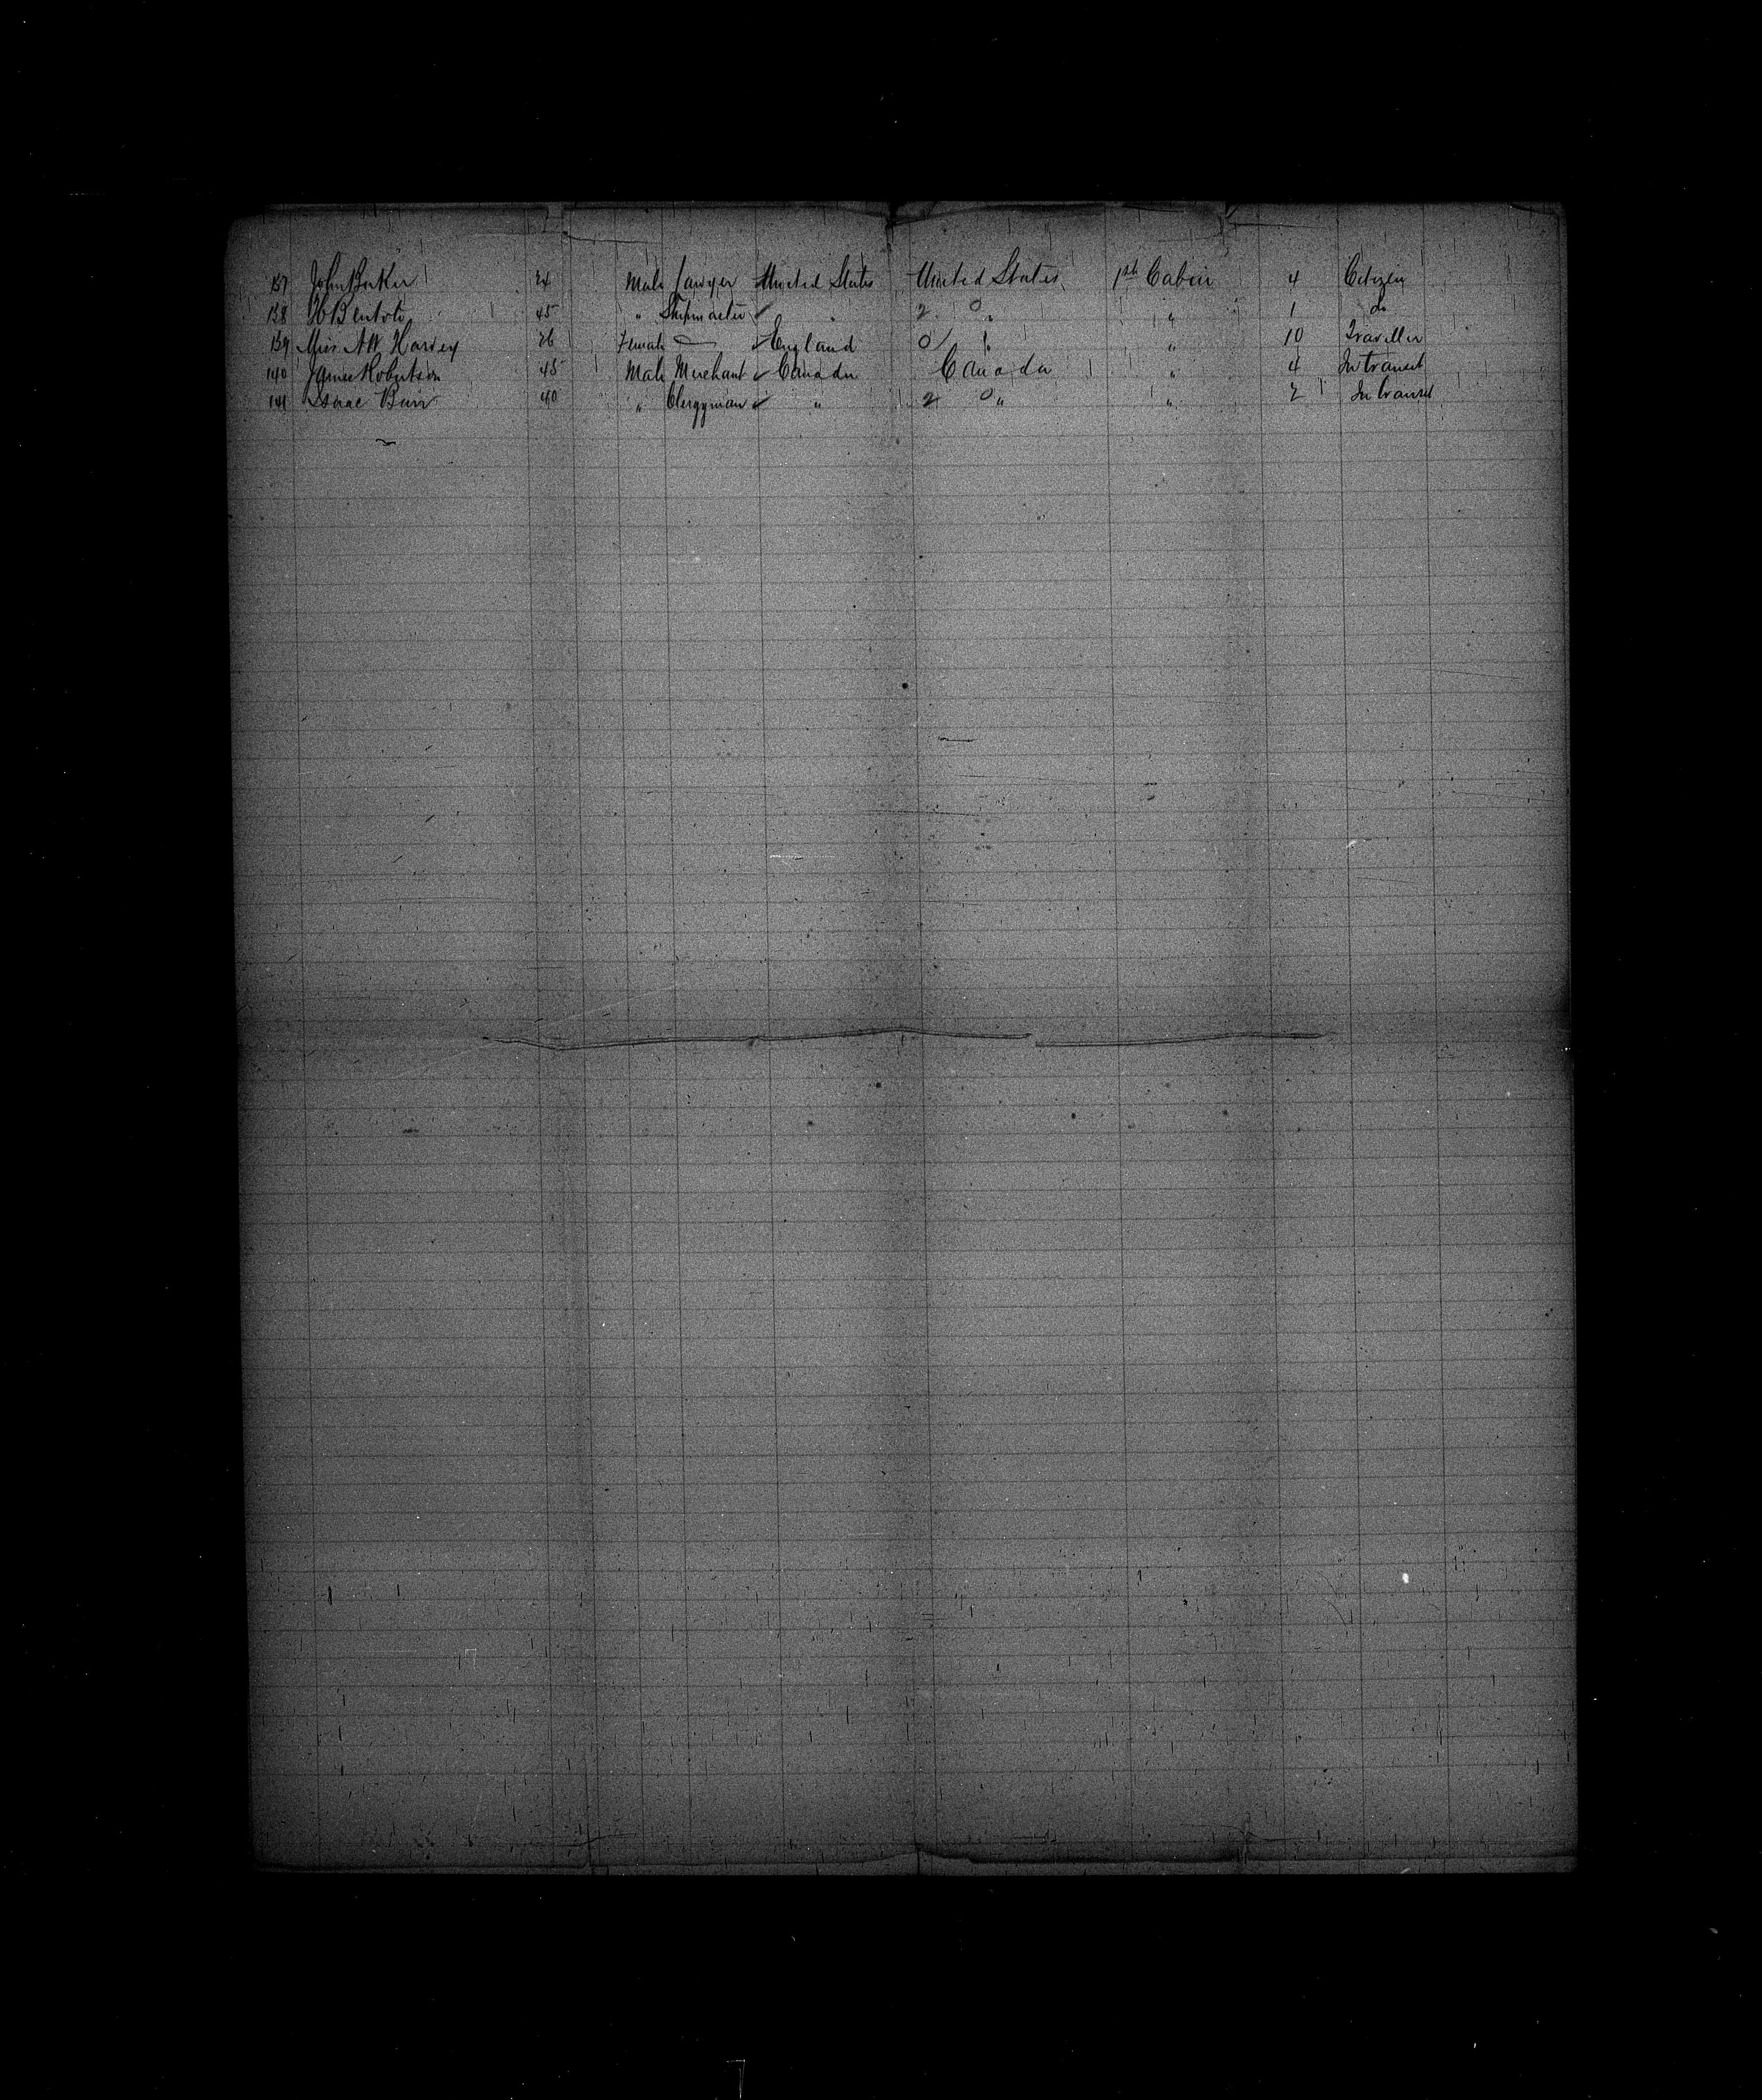 137 John Barker 24 Male Lawyer United States United States 1st Cabin 4 Citizen
138 45 " Shipmaster ✓ " 2 0 " " 1 do
139 Miss A W Harvey 26 Female — ✓ England 0 / " " 10 Traveller
140 James Robertson 45 Male Merchant ✓ Canada Canada " 4 In transit
141 Isaac Burr 40 " Clergyman ✓ " 2 0 " " 2 In transit